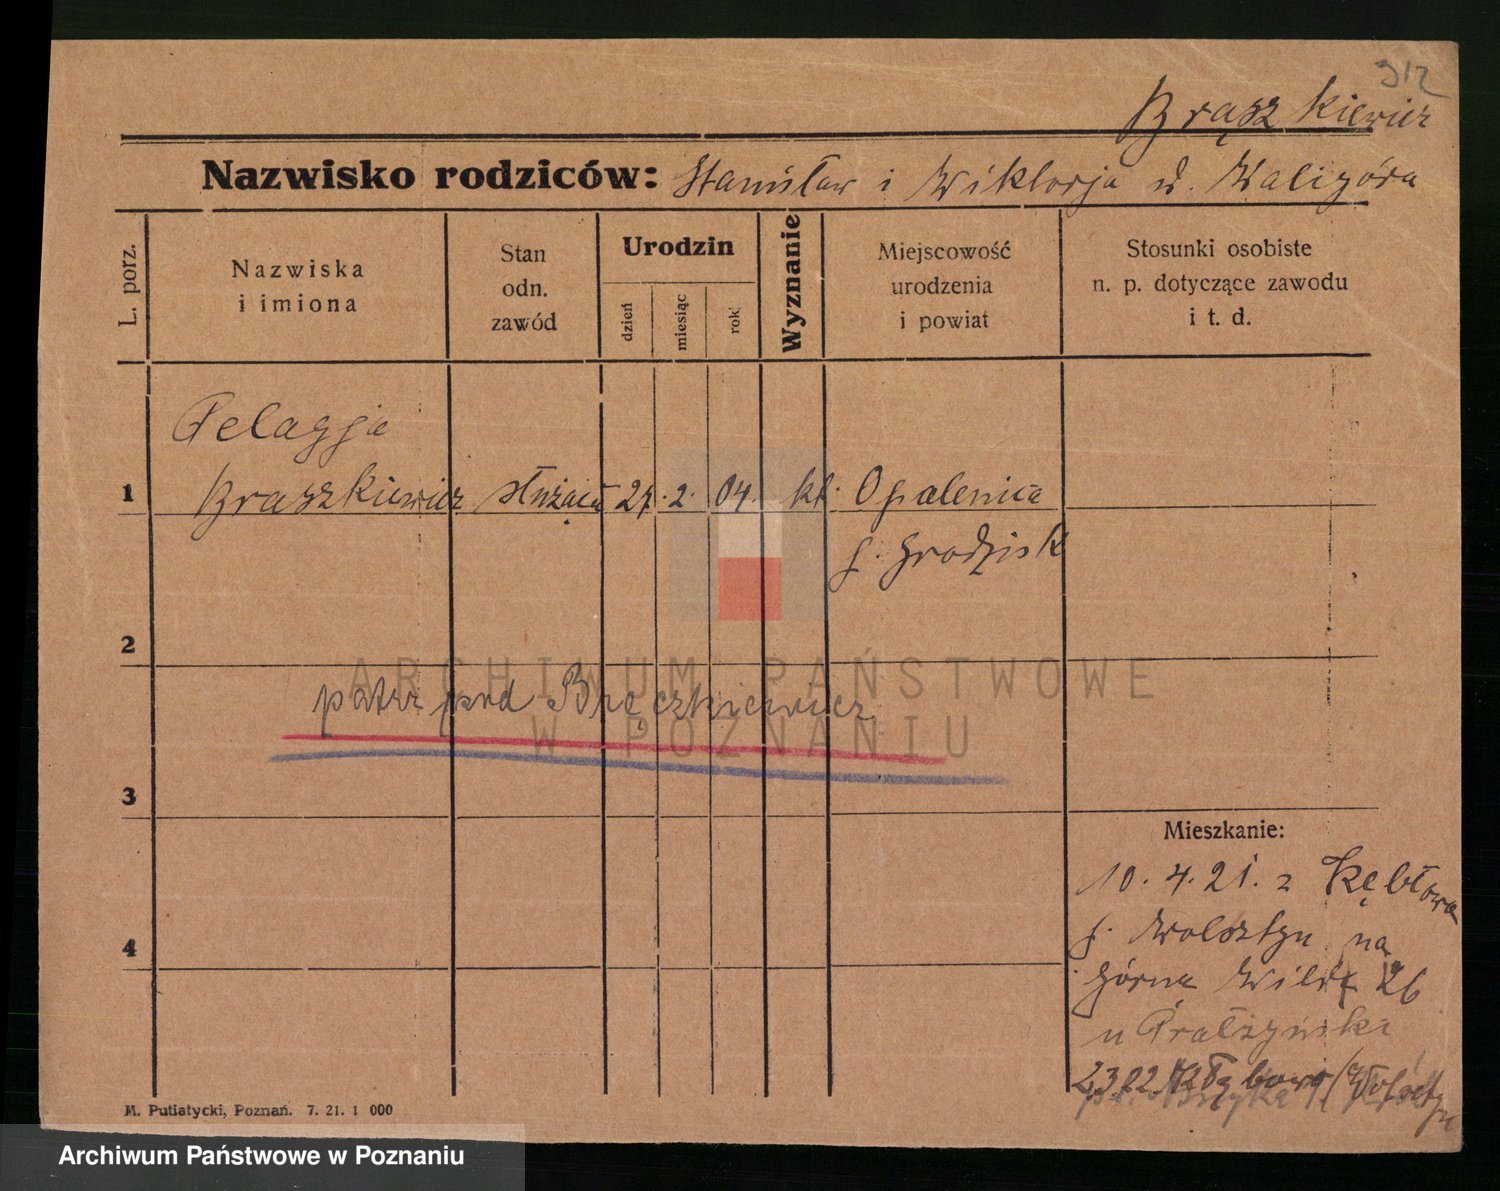 312
Brąszkiewicz
Nazwisko rodziców: Stanisław i Wiktorja d. Waligóra
L. porz.
Nazwiska
i imiona
Stan
odn.
zawód
Urodzin
dzień
miesiąc
rok
Wyznanie
Miejscowość
urodzenia
i powiat
Stosunki osobiste
n. p. dotyczące zawodu
i t. d.
Pelagja
1 Braszkiewicz służąca 27. 2. 04. kt. Opalenica
p. Grodzisk
2
ARCHIWUM PAŃSTWOWE
patrz pod Bręczkiewicz
W POZNANIU
3
Mieszkanie:
10. 4. 21. z Kębłowa
p. Wolsztyn na
4
Górna Wilda 26
u
M. Putiatycki, Poznań. 7. 21. 1 000
Archiwum Państwowe w Poznaniu